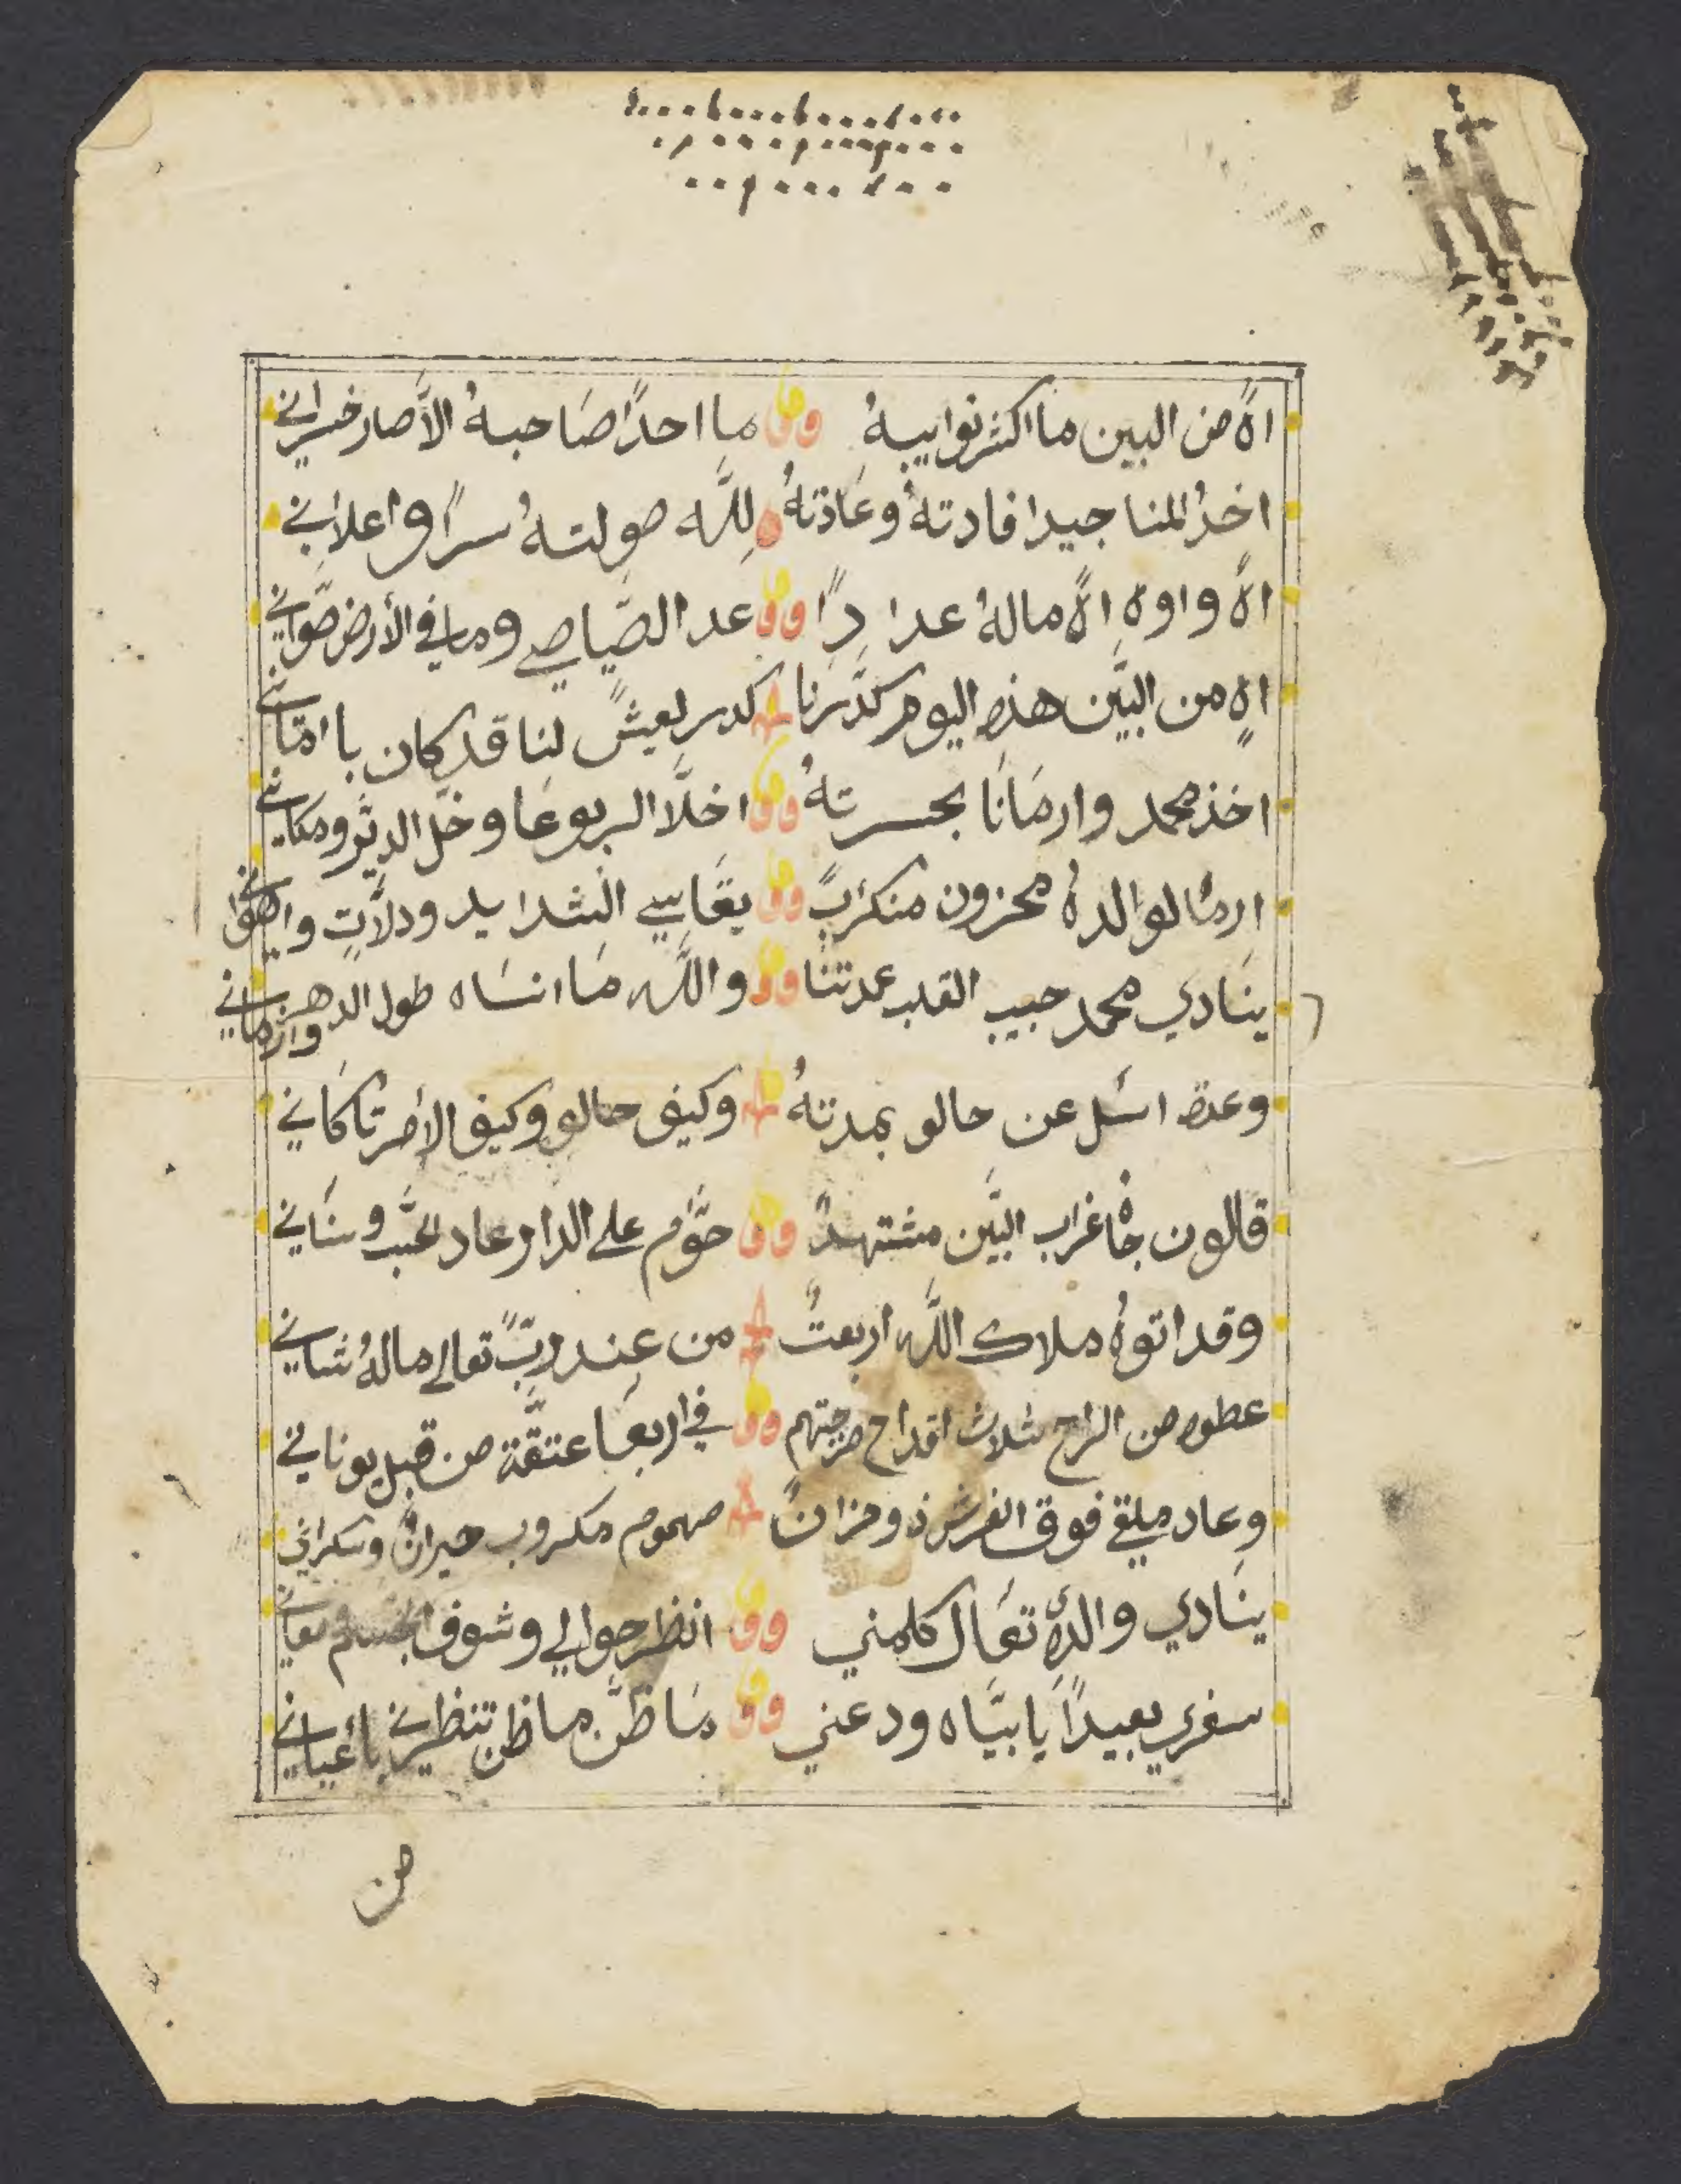 اهً من البين ما اكثر نوايبهُ ما احدًا صَاحبهُ الاَّ صار خسراني
اخدُ المنا جيدا فادتهُ وعَادتهُ للَّه صولتهُ سرًا واعلاني
اهً واوهِ اهً مالهُ عدادًا عد الصَّياصي وما في الأرض صَّواني
اهٍ من البَّين هذه اليوم كدَّرنا كدر لعيشً لنا قد كان با امَّاني
اخذ محمد وارمَانَا بحسرتهُ اخلَّا الربوعَا وخلّ الديَّر ومكاني
ارمَا لوالدهُ محزون منكربً يقَاسي الشدايد ودلاَّتٍ واهوَاني
ينَادي محمد حبيب القلب عمدتنَا واللَّه مَا انسَاه طول الدهر وازماني
وعده اسَل عن حالو بمدتهُ وكيف حالو وكيف الأمر تاكَاني
قالون جَاهْ غراب البَّين مشتهدً حوَّم على الدار عاد لحَّب وسنَاني
وقد اتوهُ ملاك اللَّه اربعتً من عِند ربّ تعالى مالهُ شاني
عطوه من الراح ثلاث اقداح مزجتهم في اربعَا عتقَّة من قبل يوناني
وعاد ملقي فوق الفرش ذو مزانً مهموم مكروب حيرانً وسكراني
ينَادي والدهُ تعَال كلمني انظر حوالي وشوف
سفري بعيدًا يَا بيَّاه ودعني مَا ظنَّ ما ظن تنظرني بأعياني
من